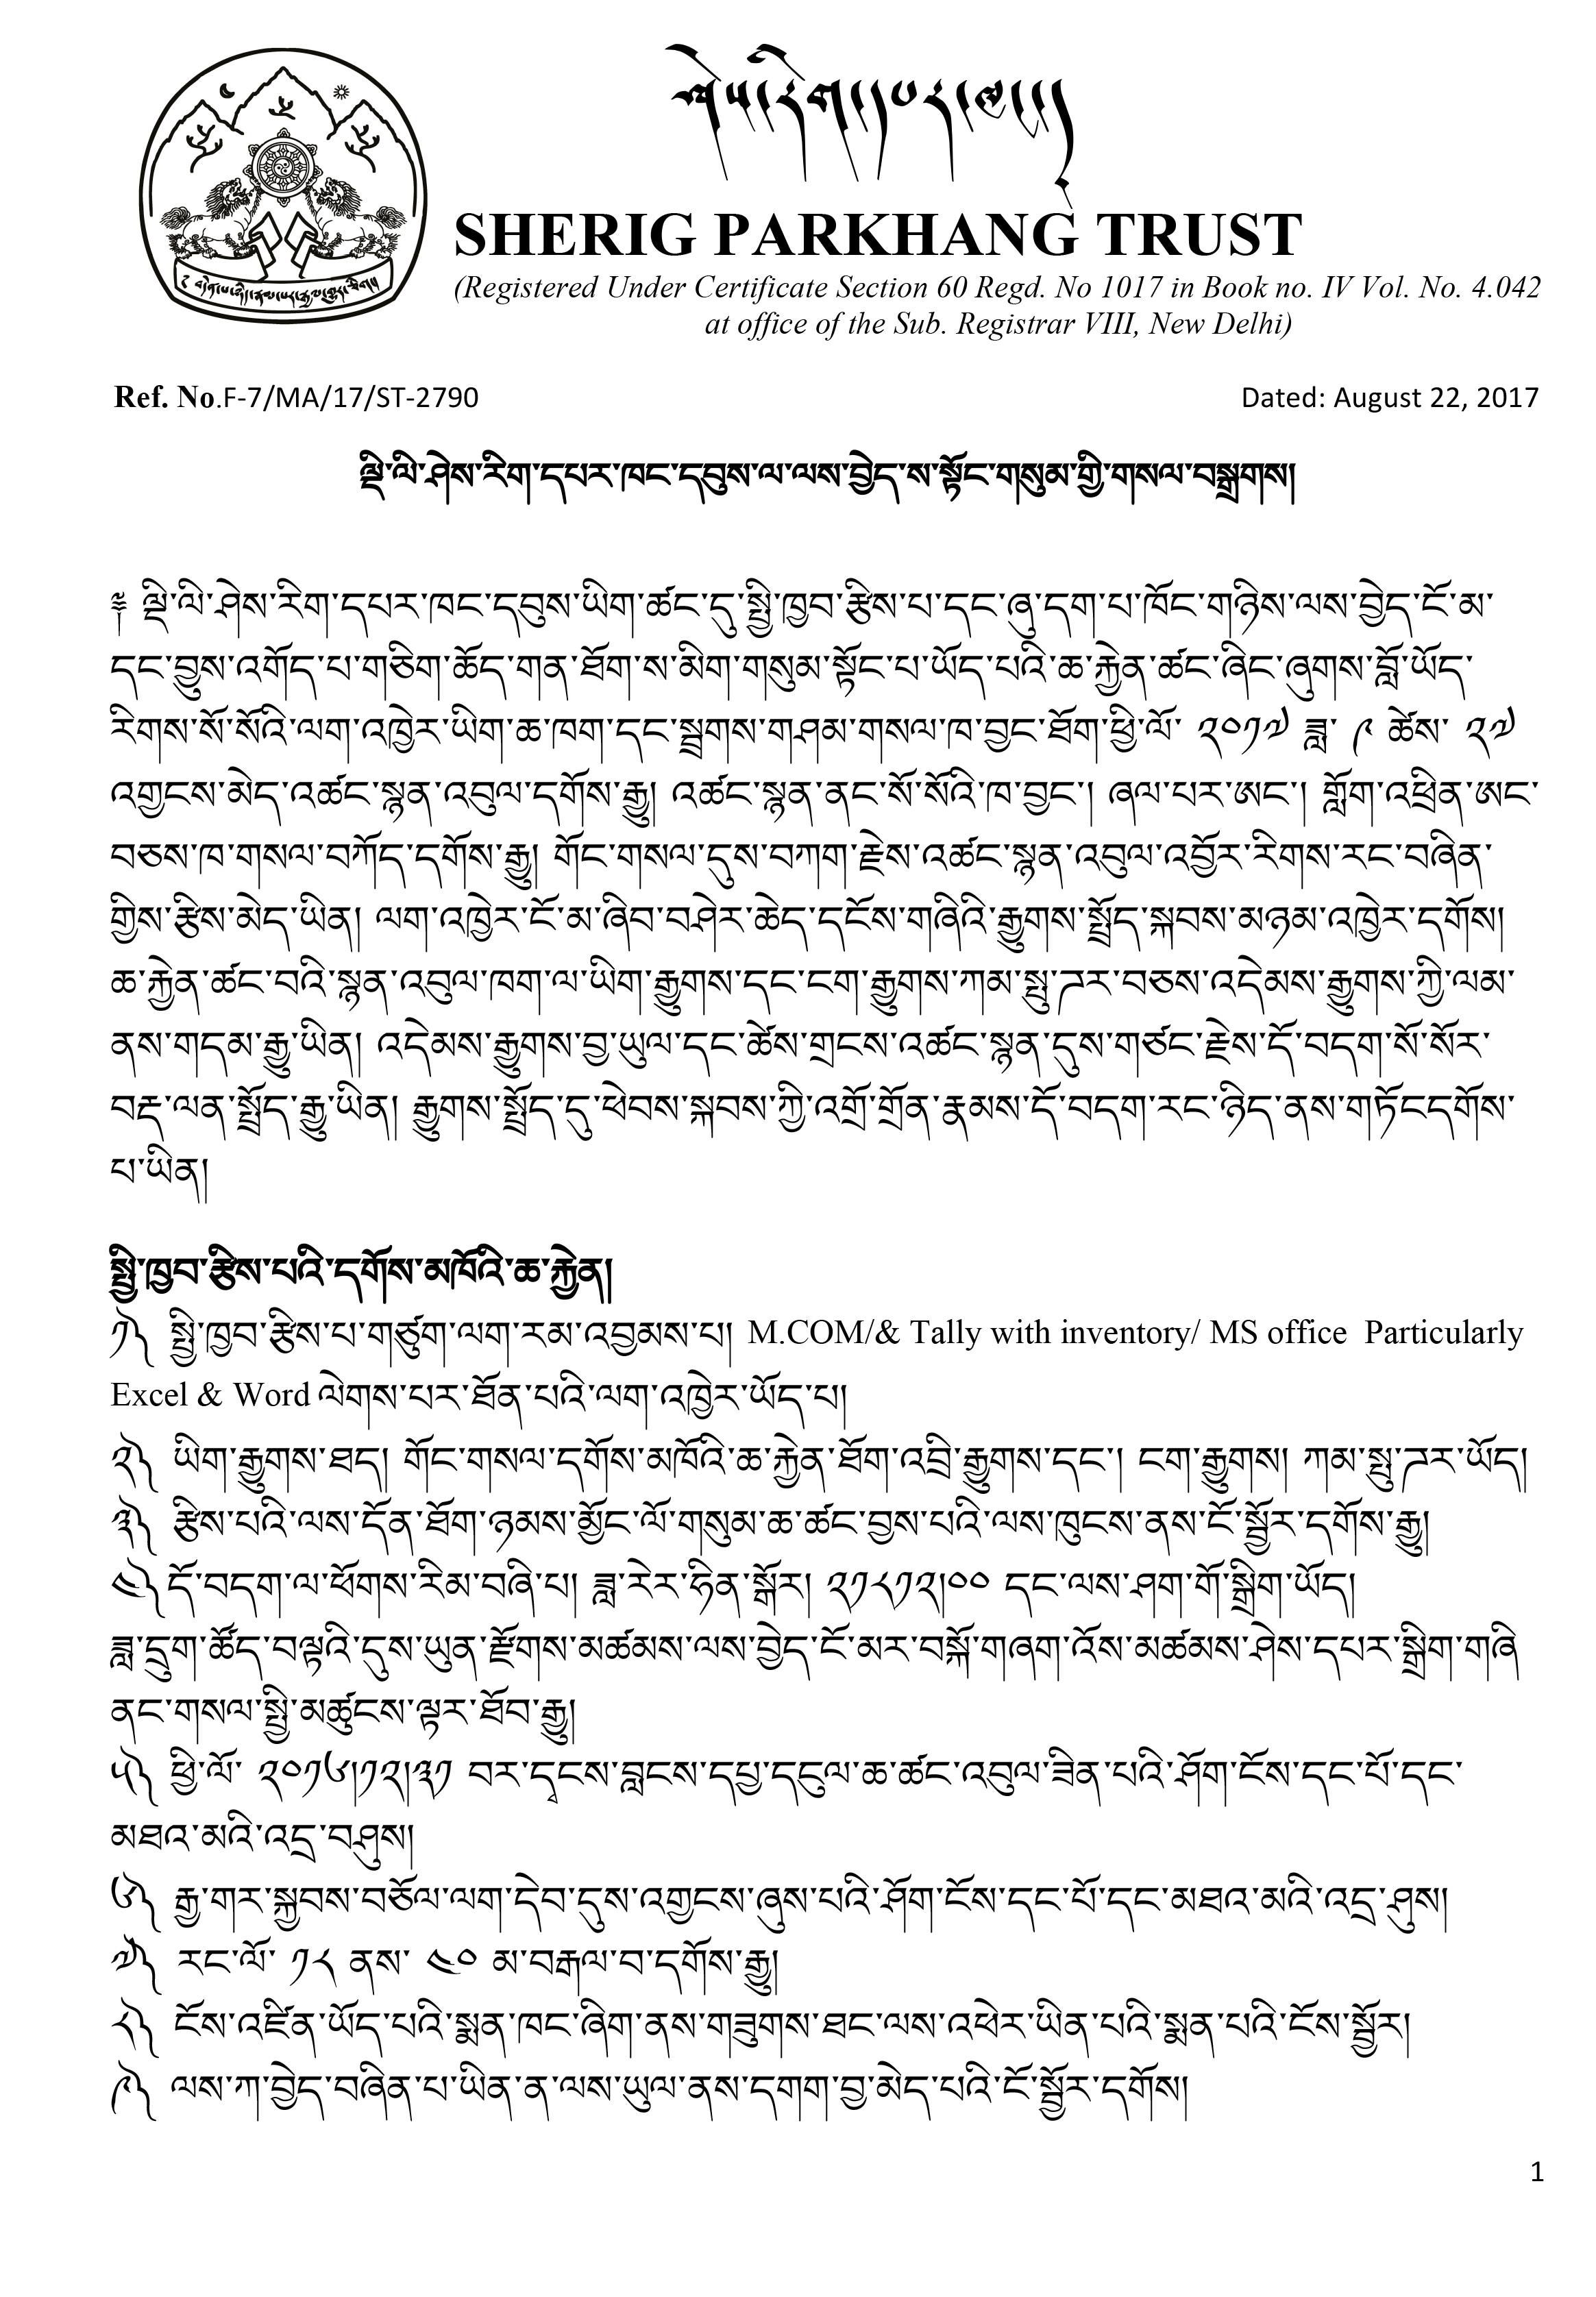 ཤེས་རིག་དཔར་ཁང་།
SHERIG PARKHANG TRUST
(Registered Under Certificate Section 60 Regd. No 1017 in Book no. IV Vol. No. 4.042
at office of the Sub. Registrar VIII, New Delhi)
Ref. No.F-7/MA/17/ST-2790 Dated: August 22, 2017
ལྡི་ལི་ཤེས་རིག་དཔར་ཁང་དབུས་ལ་ལས་བྱེད་ས་སྟོང་གསུམ་གྱི་གསལ་བསྒྲགས།
༈ ལྡི་ལི་ཤེས་རིག་དཔར་ཁང་དབུས་ཡིག་ཚང་དུ་སྤྱི་ཁྱབ་རྩིས་པ་དང་ཞུ་དག་པ་ཁོང་གཉིས་ལས་བྱེད་ངོ་མ་
དང་བྱུས་འགོད་པ་གཅིག་ཆོད་གན་ཐོག་ས་མིག་གསུམ་སྟོང་པ་ཡོད་པའི་ཆ་རྐྱེན་ཚང་ཞིང་ཞུགས་བློ་ཡོད་
རིགས་སོ་སོའི་ལག་འཁྱེར་ཡིག་ཆ་ཁག་དང་སྦྲགས་གཤམ་གསལ་ཁ་བྱང་ཐོག་ཕྱི་ལོ་ ༢༠༡༧ ཟླ་ ༩ ཚེས་ ༢༧
འགྱངས་མེད་འཚང་སྙན་འབུལ་དགོས་རྒྱུ། འཚང་སྙན་ནང་སོ་སོའི་ཁ་བྱང་། ཞལ་པར་ཨང་། གློག་འཕྲིན་ཨང་
བཅས་ཁ་གསལ་བཀོད་དགོས་རྒྱུ། གོང་གསལ་དུས་བཀག་རྗེས་འཚང་སྙན་འབུལ་འབྱོར་རིགས་རང་བཞིན་
གྱིས་རྩིས་མེད་ཡིན། ལག་འཁྱེར་ངོ་མ་ཞིབ་བཤེར་ཆེད་དངོས་གཞིའི་རྒྱུགས་སྤྲོད་སྐབས་མཉམ་འཁྱེར་དགོས།
ཆ་རྐྱེན་ཚང་བའི་སྙན་འབུལ་ཁག་ལ་ཡིག་རྒྱུགས་དང་ངག་རྒྱུགས་ཀམ་སྤུ་ཊར་བཅས་འདེམས་རྒྱུགས་ཀྱི་ལམ་
ནས་གདམ་རྒྱུ་ཡིན། འདེམས་རྒྱུགས་བྱ་ཡུལ་དང་ཚེས་གྲངས་འཚང་སྙན་དུས་གཙང་རྗེས་དོ་བདག་སོ་སོར་
བརྡ་ལན་སྤྲོད་རྒྱུ་ཡིན། རྒྱུགས་སྤྲོད་དུ་ཕེབས་སྐབས་ཀྱི་འགྲོ་གྲོན་རྣམས་དོ་བདག་རང་ཉིད་ནས་གཏོངདགོས་
པ་ཡིན།
སྤྱི་ཁྱབ་རྩིས་པའི་དགོས་མཁོའི་ཆ་རྐྱེན།
༡༽ སྤྱི་ཁྱབ་རྩིས་པ་གཙུག་ལག་རམ་འབྱམས་པ། M.COM/& Tally with inventory/ MS office Particularly
Excel & Word ལེགས་པར་ཐོན་པའི་ལག་འཁྱེར་ཡོད་པ།
༢༽ ཡིག་རྒྱུགས་ཐད། གོང་གསལ་དགོས་མཁོའི་ཆ་རྐྱེན་ཐོག་འབྲི་རྒྱུགས་དང་། ངག་རྒྱུགས། ཀམ་སྤུ་ཊར་ཡོད།
༣༽ རྩིས་པའི་ལས་དོན་ཐོག་ཉམས་མྱོང་ལོ་གསུམ་ཆ་ཚང་བྱས་པའི་ལས་ཁུངས་ནས་ངོ་སྦྱོར་དགོས་རྒྱུ།
༤༽ དོ་བདག་ལ་ཕོགས་རིམ་བཞི་པ། ཟླ་རེར་ཧིན་སྒོར། ༢༡༨༡༢།༠༠ དང་ལས་ཤག་གོ་སྒྲིག་ཡོད།
ཟླ་དྲུག་ཚོད་བལྟའི་དུས་ཡུན་རྫོགས་མཚམས་ལས་བྱེད་ངོ་མར་བསྐོ་གཞག་འོས་མཚམས་ཤེས་དཔར་སྒྲིག་གཞི
ནང་གསལ་སྤྱི་མཚུངས་ལྟར་ཐོབ་རྒྱུ།
༥༽ ཕྱི་ལོ་ ༢༠༡༦།༡༢།༣༡ བར་དྭངས་བླངས་དཔྱ་དངུལ་ཆ་ཚང་འབུལ་ཟིན་པའི་ཤོག་ངོས་དང་པོ་དང་
མཐའ་མའི་འདྲ་བཤུས།
༦༽ རྒྱ་གར་སྐྱབས་བཅོལ་ལག་དེབ་དུས་འགྱངས་ཞུས་པའི་ཤོག་ངོས་དང་པོ་དང་མཐའ་མའི་འདྲ་ཤུས།
༧༽ རང་ལོ་ ༡༨ ནས་ ༤༠ མ་བརྒལ་བ་དགོས་རྒྱུ།
༨༽ ངོས་འཛིན་ཡོད་པའི་སྨན་ཁང་ཞིག་ནས་གཟུགས་ཐང་ལས་འཕེར་ཡིན་པའི་སྨན་པའི་ངོས་སྦྱོར།
༩༽ ལས་ཀ་བྱེད་བཞིན་པ་ཡིན་ན་ལས་ཡུལ་ནས་དགག་བྱ་མེད་པའི་ངོ་སྦྱོར་དགོས།
1